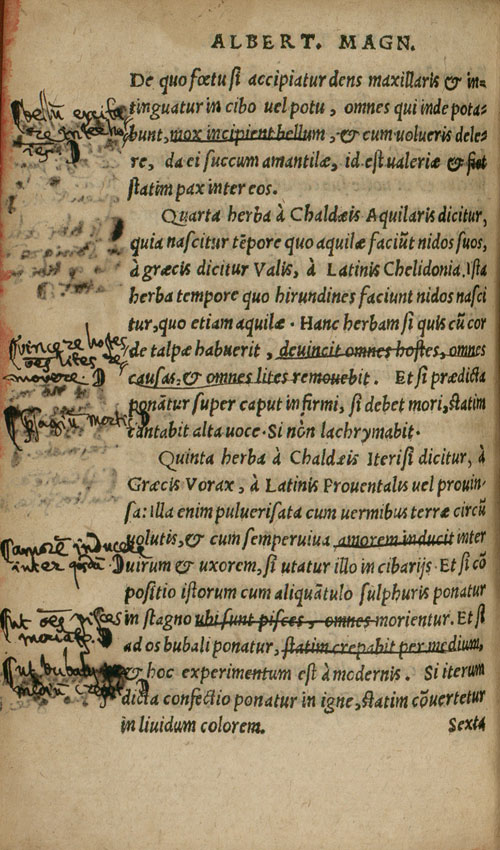 ALBERT. MAGN.
De quo fœtu si accipiatur dens maxillaris & in-
tinguatur in cibo uel potu, omnes qui inde pota-
bunt, mox incipient bellum, & cum uolueris dele-
re, da ei succum amantilæ, id est ualeriæ & fiet
statim pax inter eos.
Quarta herba à Chaldæis Aquilaris dicitur,
quia nascitur tẽpore quo aquilæ faciũt nidos suos,
à græcis dicitur Valis, à Latinis Chelidonia. Ista
herba tempore quo hirundines faciunt nidos nasci
tur, quo etiam aquilæ. Hanc herbam si quis cũ cor
de talpæ habuerit, deuincit omnes hostes, omnes
causas, & omnes lites remouebit. Et si prædicta
ponãtur super caput infirmi, si debet mori, statim
cantabit alta uoce. Si nòn lachrymabit.
Quinta herba à Chaldæis Iterisi dicitur, à
Græcis Vorax, à Latinis Prouentalus uel prouin-
sa: illa enim puluerisata cum uermibus terræ circũ
uolutis, & cum semperuiua amorem inducit inter
uirum & uxorem, si utatur illo in cibarijs. Et si cõ
positio istorum cum aliquãtulo sulphuris ponatur
in stagno ubi sunt pisces, omnes morientur. Et si
ad os bubali ponatur, statim crepabit per medium,
& hoc experimentum est à modernis. Si iterum
dicta confectio ponatur in igne, statim cõuertetur
in liuidum colorem.
Sexta
bellũ excita
re inter ho
Vincere hostes
oẽs lites re
movere.
mortis
amorẽ inducere
inter
ut oẽs pisces
ut bubalus